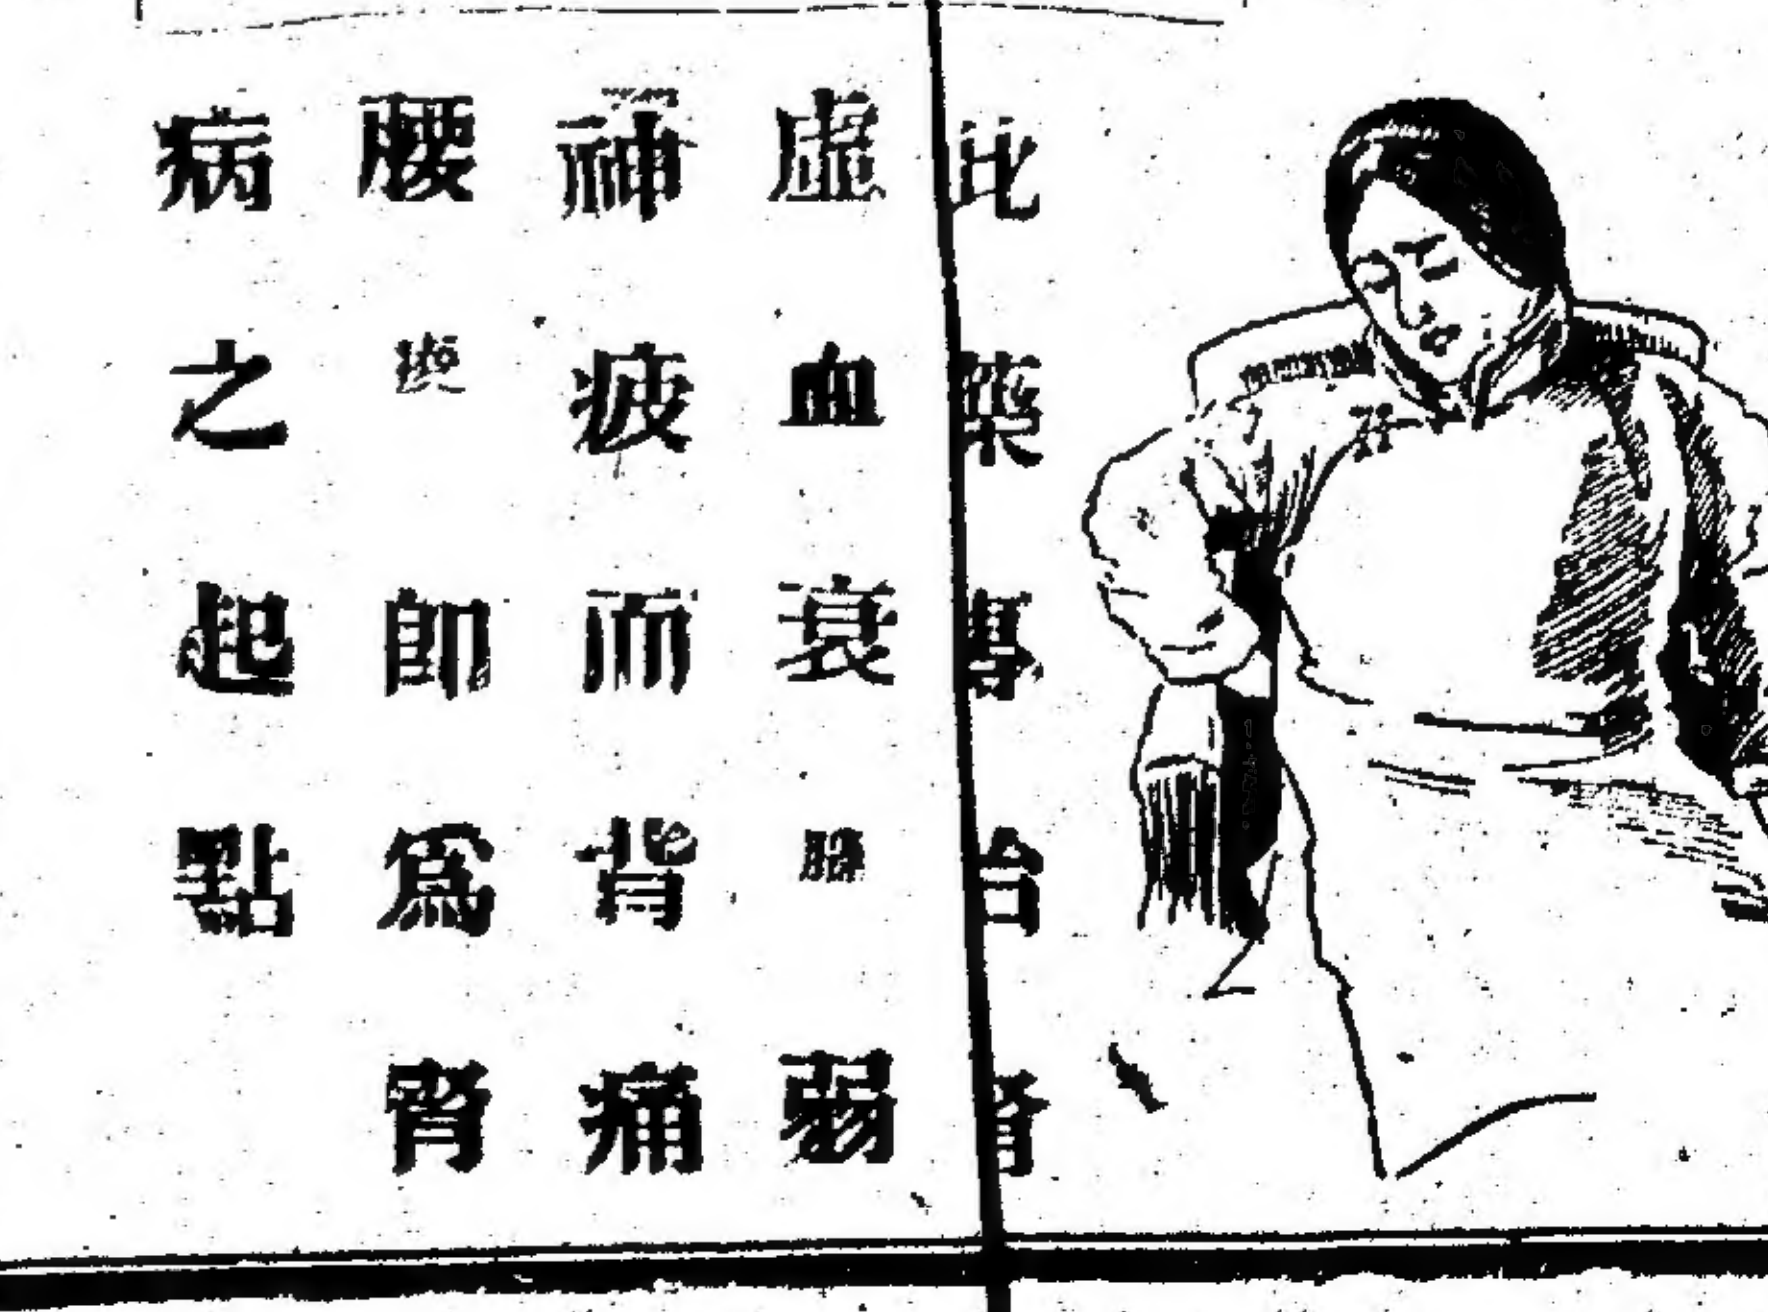 此藥專治腎
虛血衰腦弱
神疲而背痛
腰痠即為腎
病之起點